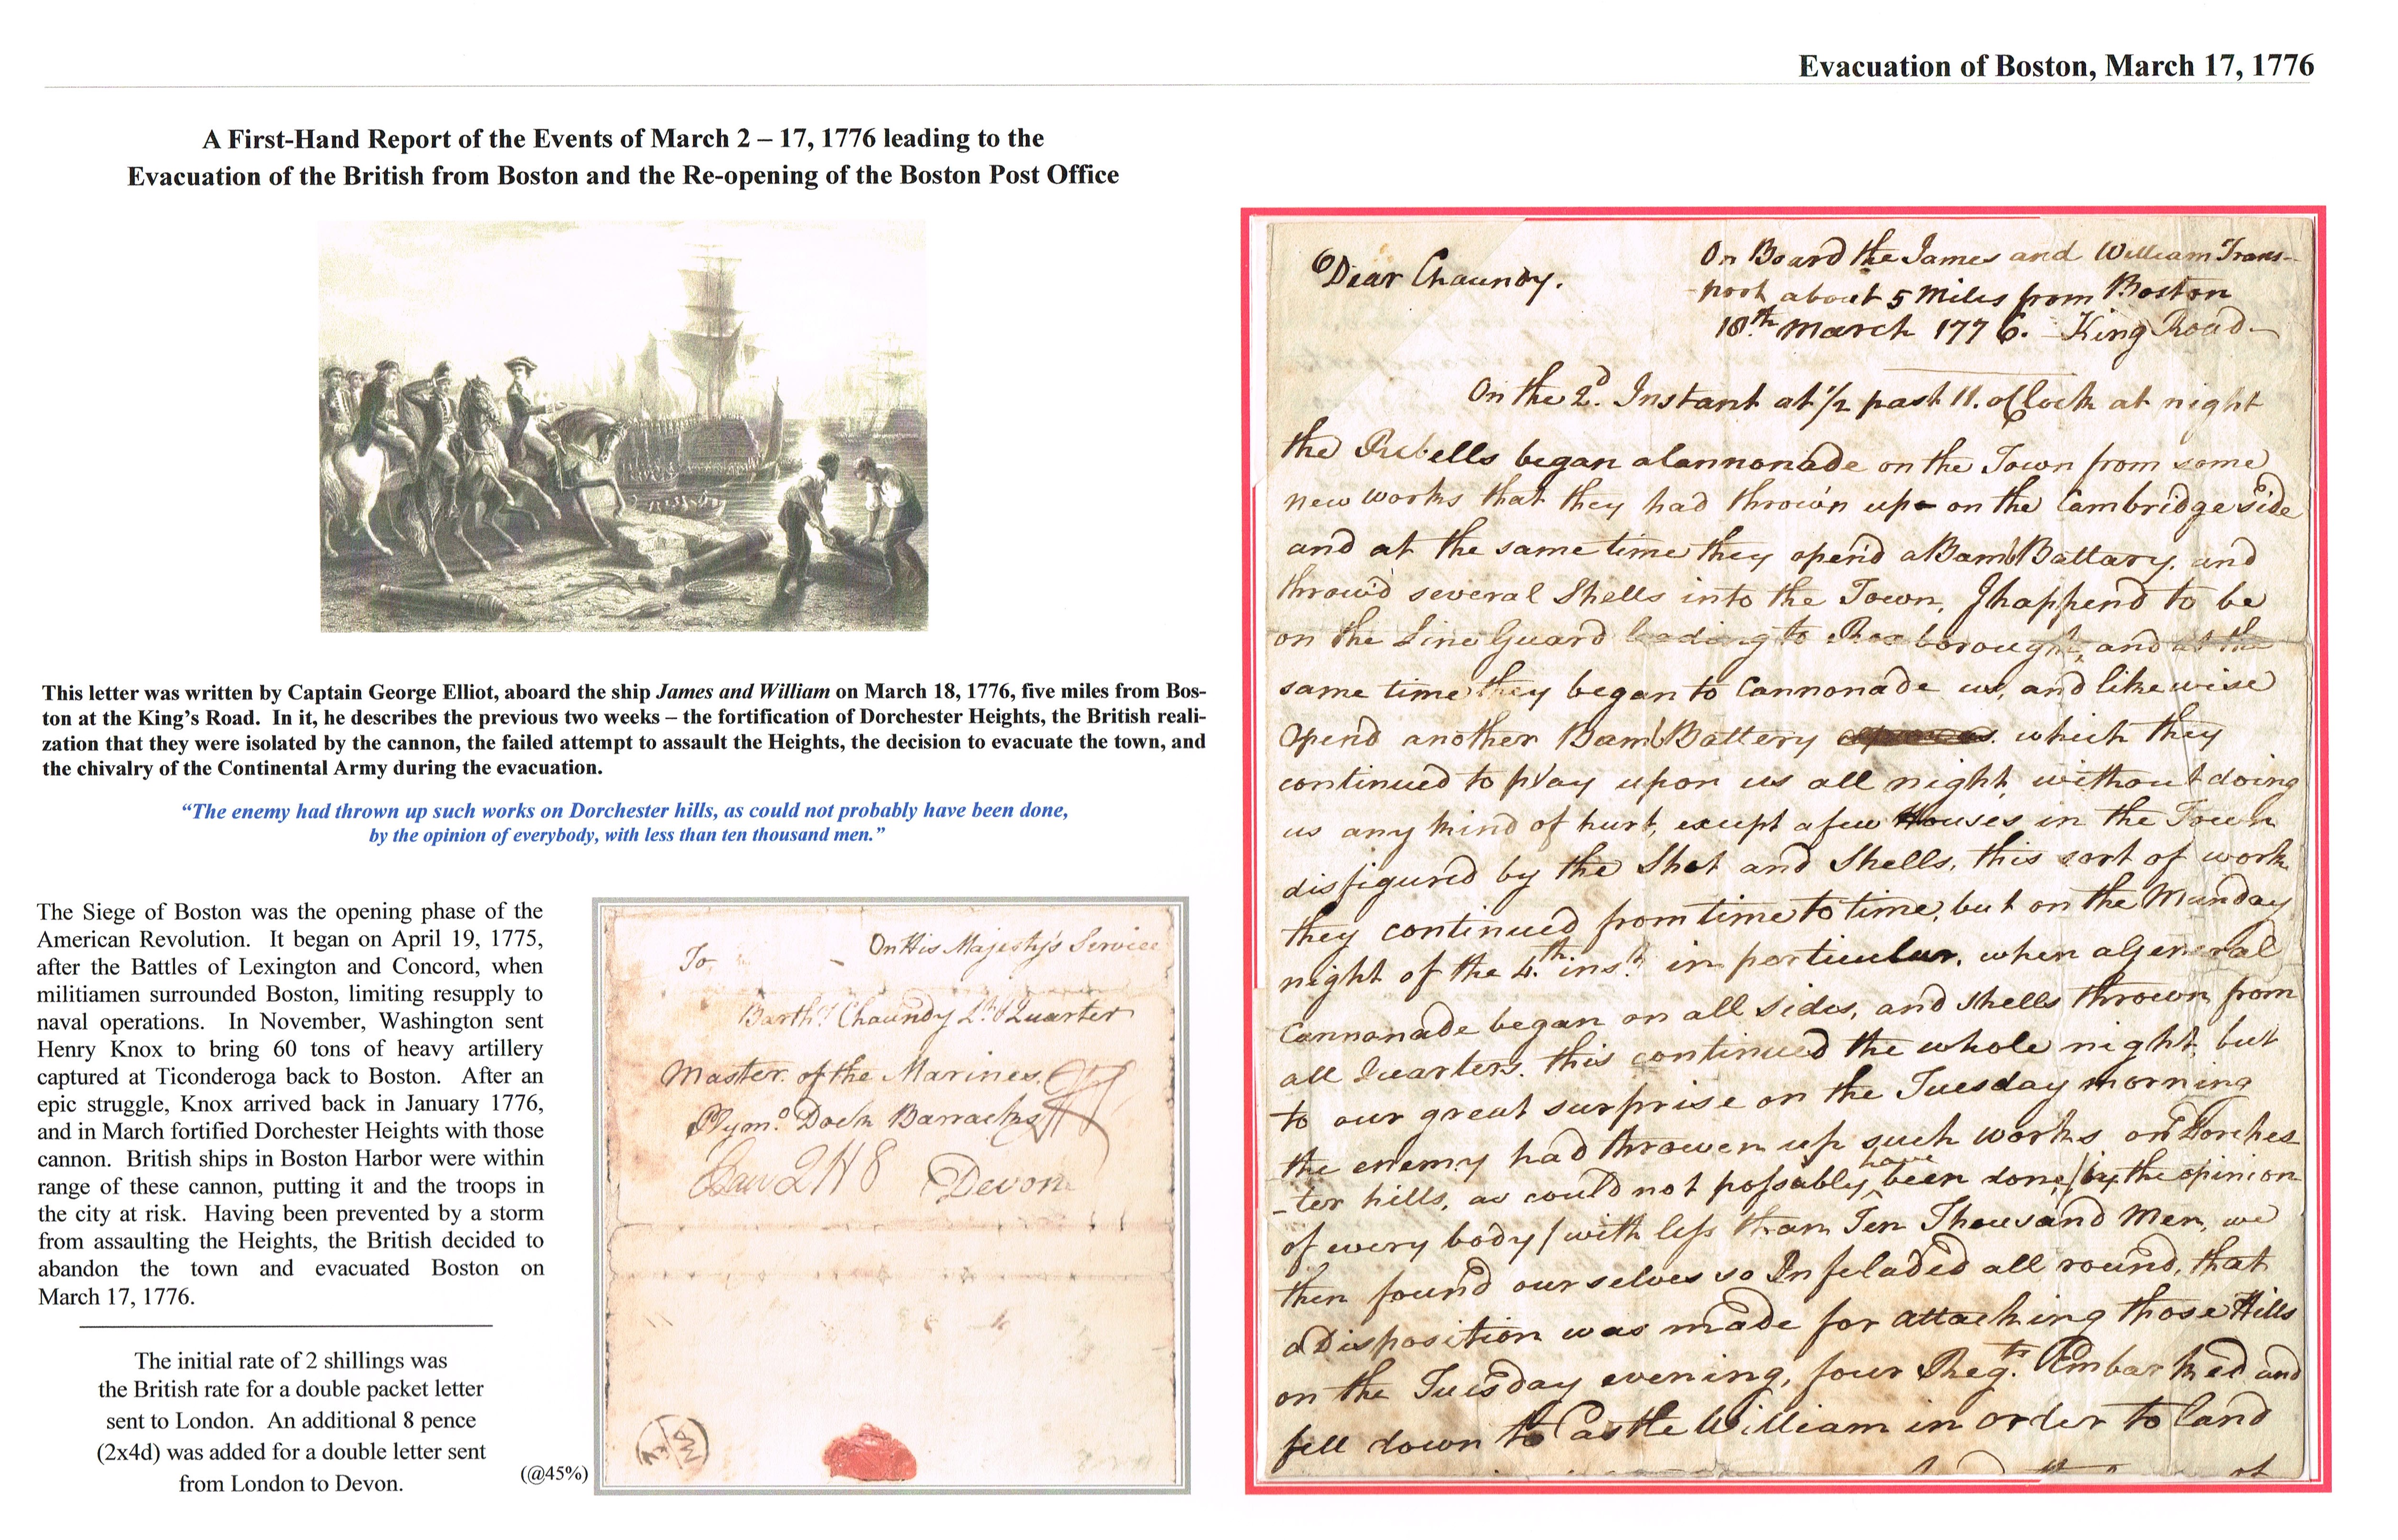 Evacuation of Boston, March 17, 1776
A First-Hand Report of the Events of March 2 – 17, 1776 leading to the
Evacuation of the British from Boston and the Re-opening of the Boston Post Office
This letter was written by Captain George Elliot, aboard the ship James and William on March 18, 1776, five miles from Bos-
ton at the King's Road. In it, he describes the previous two weeks – the fortification of Dorchester Heights, the British reali-
zation that they were isolated by the cannon, the failed attempt to assault the Heights, the decision to evacuate the town, and
the chivalry of the Continental Army during the evacuation.
“The enemy had thrown up such works on Dorchester hills, as could not probably have been done,
by the opinion of everybody, with less than ten thousand men.”
The Siege of Boston was the opening phase of the
American Revolution. It began on April 19, 1775,
after the Battles of Lexington and Concord, when
militiamen surrounded Boston, limiting resupply to
naval operations. In November, Washington sent
Henry Knox to bring 60 tons of heavy artillery
captured at Ticonderoga back to Boston. After an
epic struggle, Knox arrived back in January 1776,
and in March fortified Dorchester Heights with those
cannon. British ships in Boston Harbor were within
range of these cannon, putting it and the troops in
the city at risk. Having been prevented by a storm
from assaulting the Heights, the British decided to
abandon the town and evacuated Boston on
March 17, 1776.
The initial rate of 2 shillings was
the British rate for a double packet letter
sent to London. An additional 8 pence
(2x4d) was added for a double letter sent
from London to Devon.
(@45%)
On His Majesty's Service
To
Barthw Chaundy Lt & Quarter
Master of the Marines
Plymo Dock Barracks
2/8 Devon
MA
Dear Chaundy.
On Board the James and William Trans-
-port about 5 Miles from Boston
18th March 1776. King Road
On the 2d Instant at 1/2 past 11. oClock at night
the Rebells began a Cannonade on the Town from some
new works that they had thrown up on the Cambridge side
and at the same time they open'd a Bamb Battary, and
throw'd several Shells into the Town, I happend to be
on the Line Guard leading to Roxborough, and at the
same time they began to Cannonade us, and likewise
Opend another Bamb Battery which they
continued to play upon us all night, without doing
us any kind of hurt, except a few Houses in the Town
disfigured by the Shot and Shells, this sort of work
they continued from time to time, but on the Munday
night of the 4th inst in particular, when a General
Cannonade began on all sides, and shells thrown from
all Quarters. this continued the whole night, but
to our great surprise on the Tuesday morning
the enemy had throwen up such works on Dorches
-ter hills, as could not possably have been done / by the opinion
of every body / with less than Ten Thousand Men, we
then found ourselves so Infeladed all round, that
a Disposition was made for attacking those Hills
on the Tuesday evening, four Regts Embarked and
fell down to Castle William in order to land